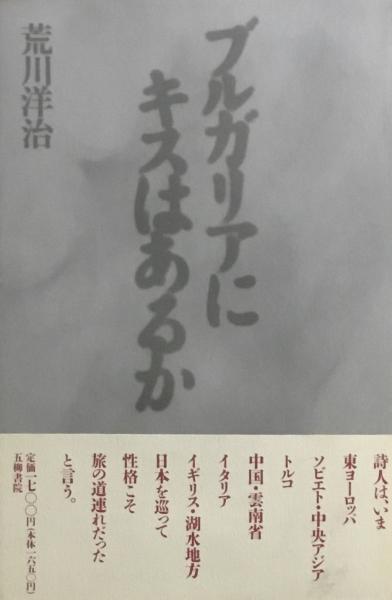 荒川洋治
ブルガリアに
キスはあるか
詩人は、いま
東ヨーロッパ
ソビエト・中央アジア
トルコ
中国・雲南省
イタリア
イギリス・湖水地方
日本を巡って
性格こそ
旅の道連れだった
と言う。
定価一七〇〇円(本体一六五〇円)
五柳書院